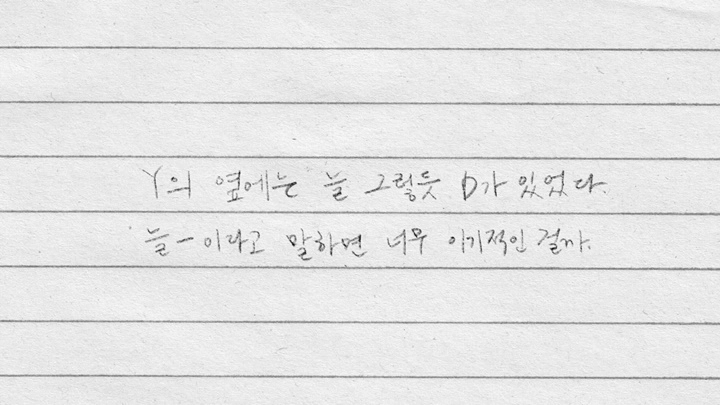 Y의 옆에는 늘 그렇듯 D가 있었다.
늘-이라고 말하면 너무 이기적인 걸까.